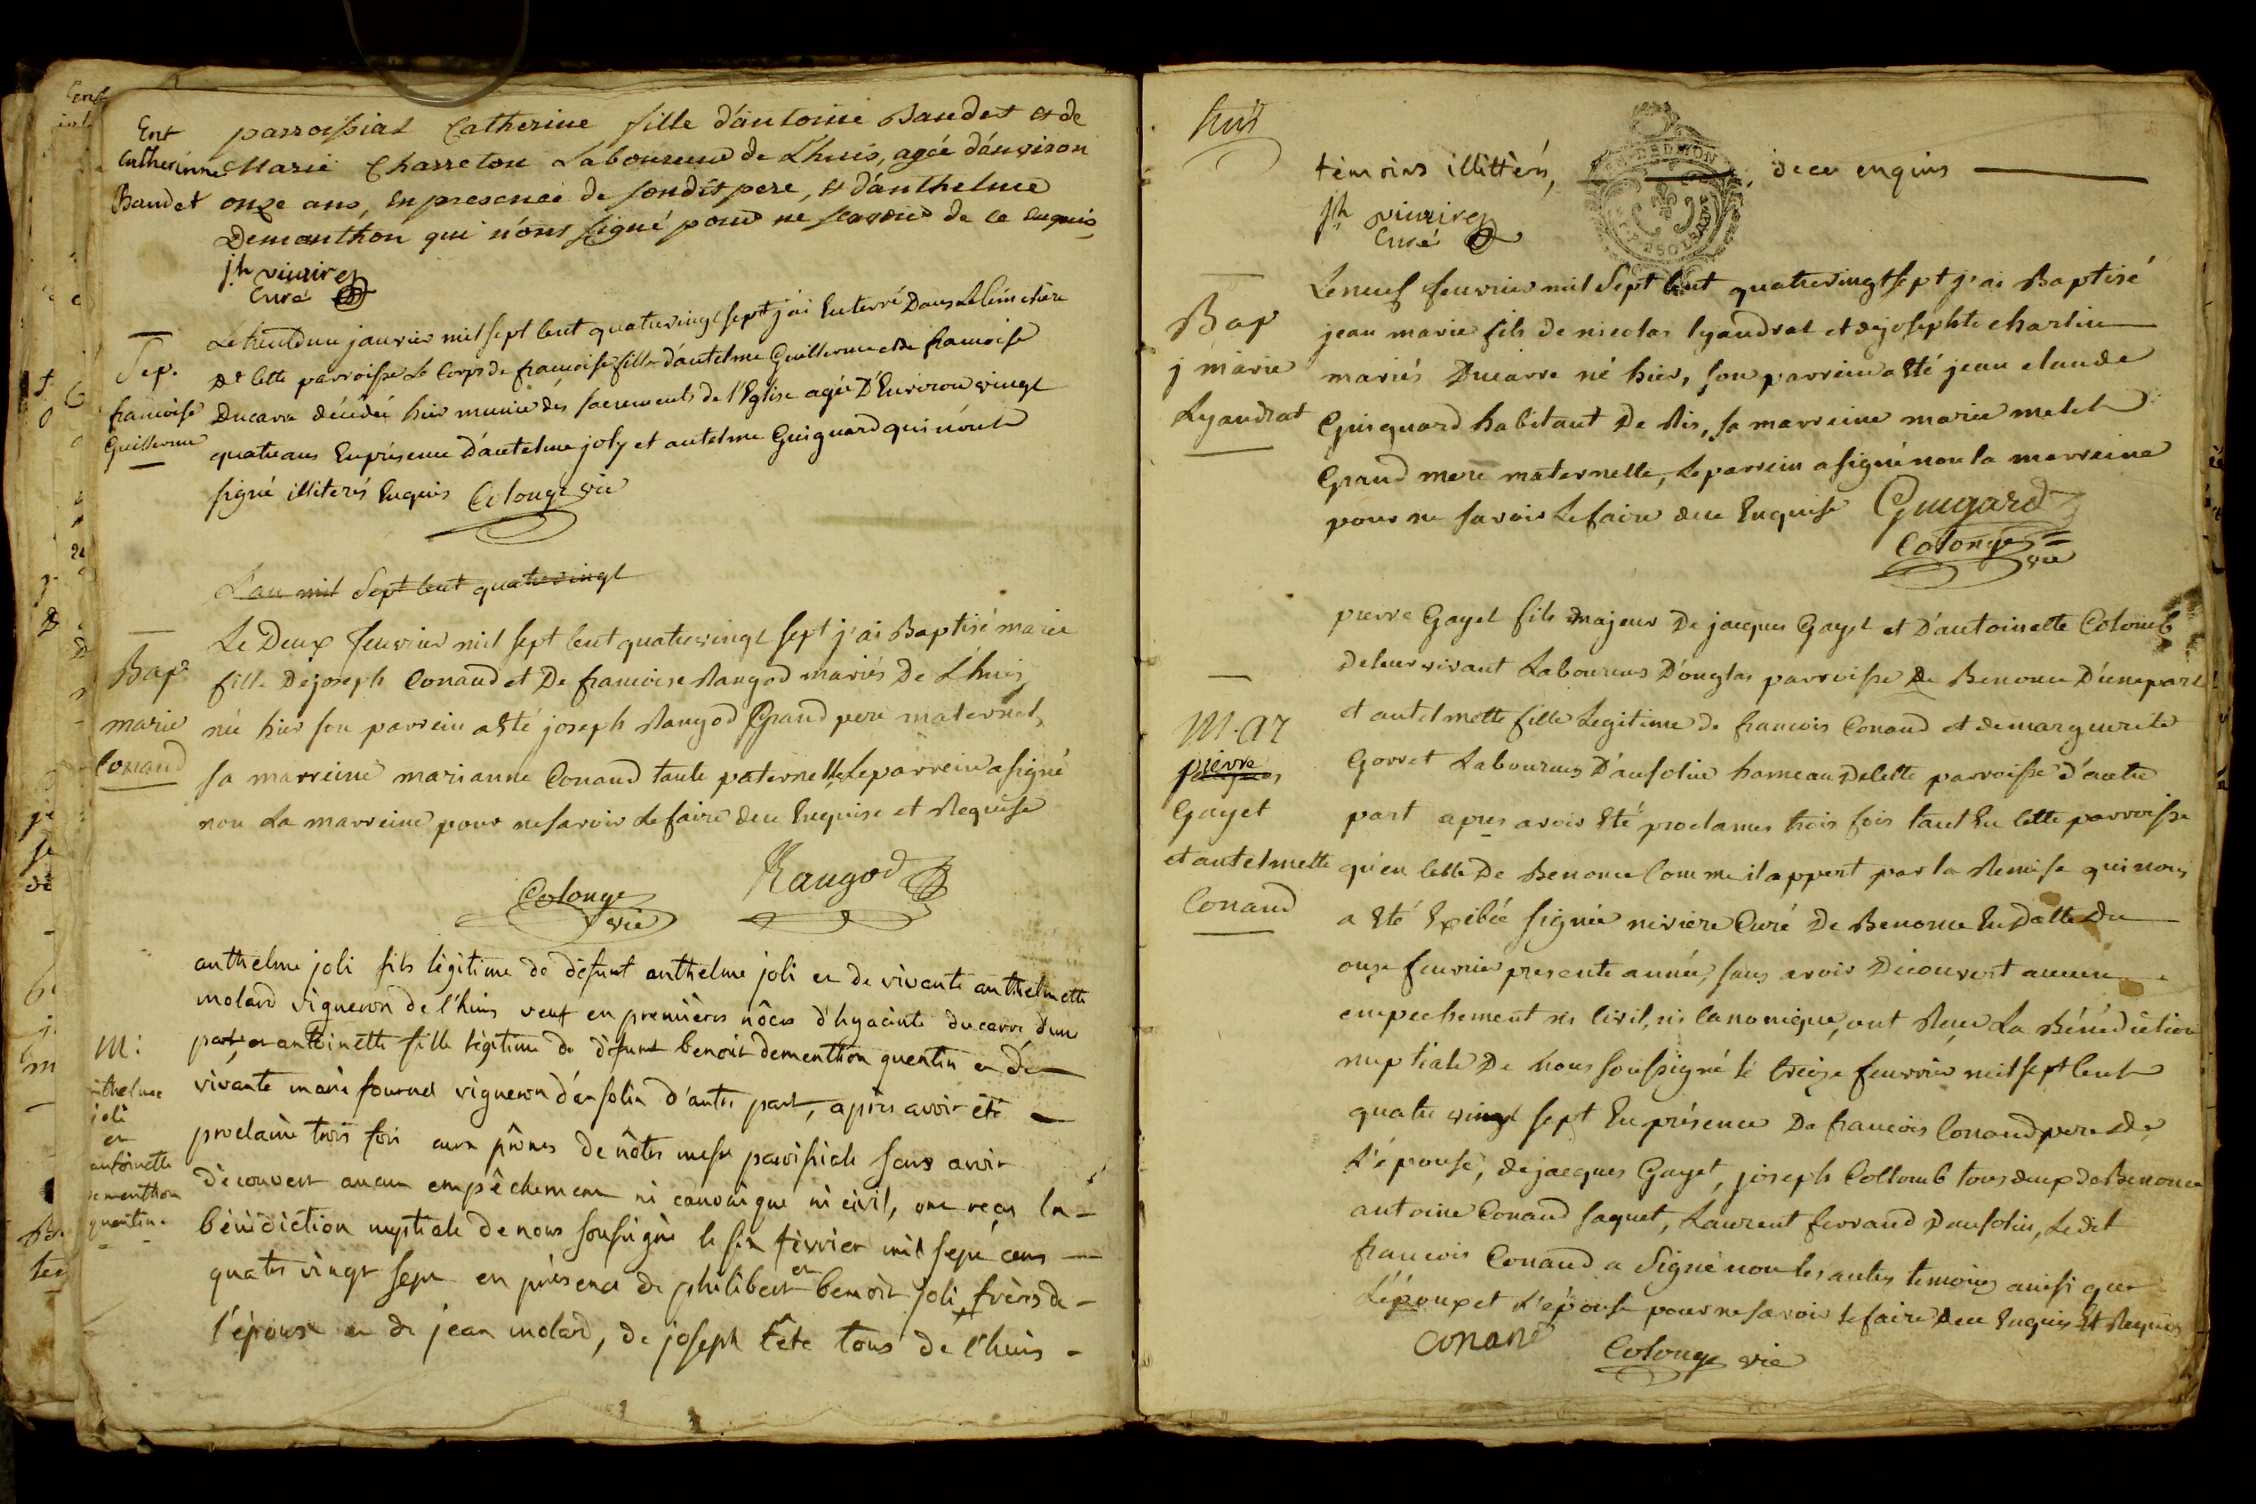 Ent
Catherinne
Baudet
parroissial Catherine fille d'antoine Baudet et de
Marie Charreton Laboureur de Lhuis, agée d'anviron
onze ans, en presence de sondit pere, et d'anthelme
Demonthon qui n'ont signé pour ne scavoir de ce enquis
jh viuire
Curé
Sep.
francoise
Guillerme
Le trent un janvier mil sept cent quatrevingt sept j'ai Enterré Dans Le Cimetiere
De Cette parroisse Le Corps de francoise fille d'antelme Guillerme et de francoise
Ducarre décédée hier munie des sacrements de l'Eglise agée D'Environ vingt
quatre ans En présence d'antelme joly et antelme Guiguard qui n'ont
signé illiterés Enquis Colonge vic
L'an mil Sept Cent quatrevingt
Bap
marie
Conand
Le Deux fevrier mil sept Cent quatrevingt sept j'ai Baptisé marie
fille De joseph Conand et De francoise Rangod mariés De Lhuis,
née hier son parrein a Eté joseph Rangod Grand pere maternel,
sa marreine marianne Conand tante paternelle, Le parrein a signé
non La marreine pour ne savoir Le faire de ce Enquise et Requise
Colonge vic
Rangod
M:
anthelme
joli
et
antoinette
dementhon
quentin
anthelme joli fils légitime de défunt anthelme joli et de vivante anthelmette
molard vigneron de l'huis veuf en premières nôces d'hyacinte ducarre d'une
part, et antoinette fille légitime de défunt benoit dementhon quentin et de
vivante marie fournel vigneron d'ansolin d'autre part, après avoir été
proclamé trois fois aux prônes de nôtre messe paroissiale sans avoir
découvert aucun empêchement ni canonique ni civil, ont reçu la
bénédiction nuptiale de nous soussigné le six février mil sept cens
quatre vingt sept en présence de philibert et benoit joli frères de
l'époux et de jean molard, de joseph tête tous de l'huis
huit
témoins illittérés, de ce enquis
jh viuire
Curé
Bap
j marie
Lyaudrat
Le neuf fevrier mil Sept Cent quatrevingt sept j'ai Baptisé
jean marie fils de nicolas lyaudrat et de josephte charlin
mariés Ducarre né hier, son parrein a Eté jean claude
Guiguard habitant De Ris, sa marreine marie melet
Grand mere maternelle, Le parrein a signé non la marreine
pour ne savoir Le faire de ce Enquise Guigard
Colonge vic
M.ar
pierre
Gayet
et antelmette
Conand
pierre Gayet fils majeur De jacques Gayet et D'antoinette Colomb
de leur vivant Laboureurs D'onglas parroisse De Benonce D'une part
et antelmette fille Legitime de francois Conand et de marguerite
Gorret Laboureurs D'ansolin hameau De Cette parroisse d'autre
part apres avoir Eté proclamés trois fois tant En Cette parroisse
qu'en Celle De Benonce Comme il appert par la Remise qui nous
a Eté Exibée signée riviere Curé De Benonce En Datte Du
onze fevrier presente année, sans avoir Découvert aucun
empechement ni Civil, ni Canonique, ont Reçu La Bénédiction
nuptiale De nous soussigné le treize fevrier mil sept Cent
quatre vingt sept En présence De francois Conand pere De
l'épouse, de jacques Gayet, joseph Collomb tous deux de Benonce
antoine Conand saquet, Laurent ferrand D'ansolin, Ledit
francois Conand a Signé non les autres temoins ainsi que
L'époux et L'épouse pour ne savoir le faire De ce Enquis Et Requis
conand Colonge vic